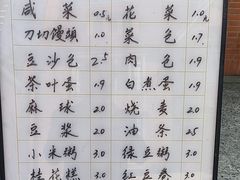 咸菜 0.5元 花菜 1.0元
刀切馒頭 1.0 菜包 1.9
豆沙包 2.5 肉包 1.9
茶叶蛋 1.9 白煮蛋 1.9
麻球 2.0 烧麦 2.0
豆漿 2.0 油条 2.5
小米粥 3.0 绿豆粥 3.0
桂花糕 3.0 红豆卷 3.0